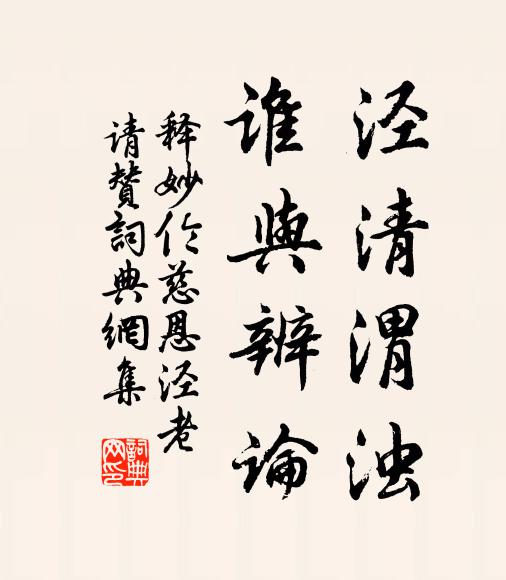 泾清渭浊
谁与辨论
释妙伦慈恩泾老
请赞詞典網集
詞典網印